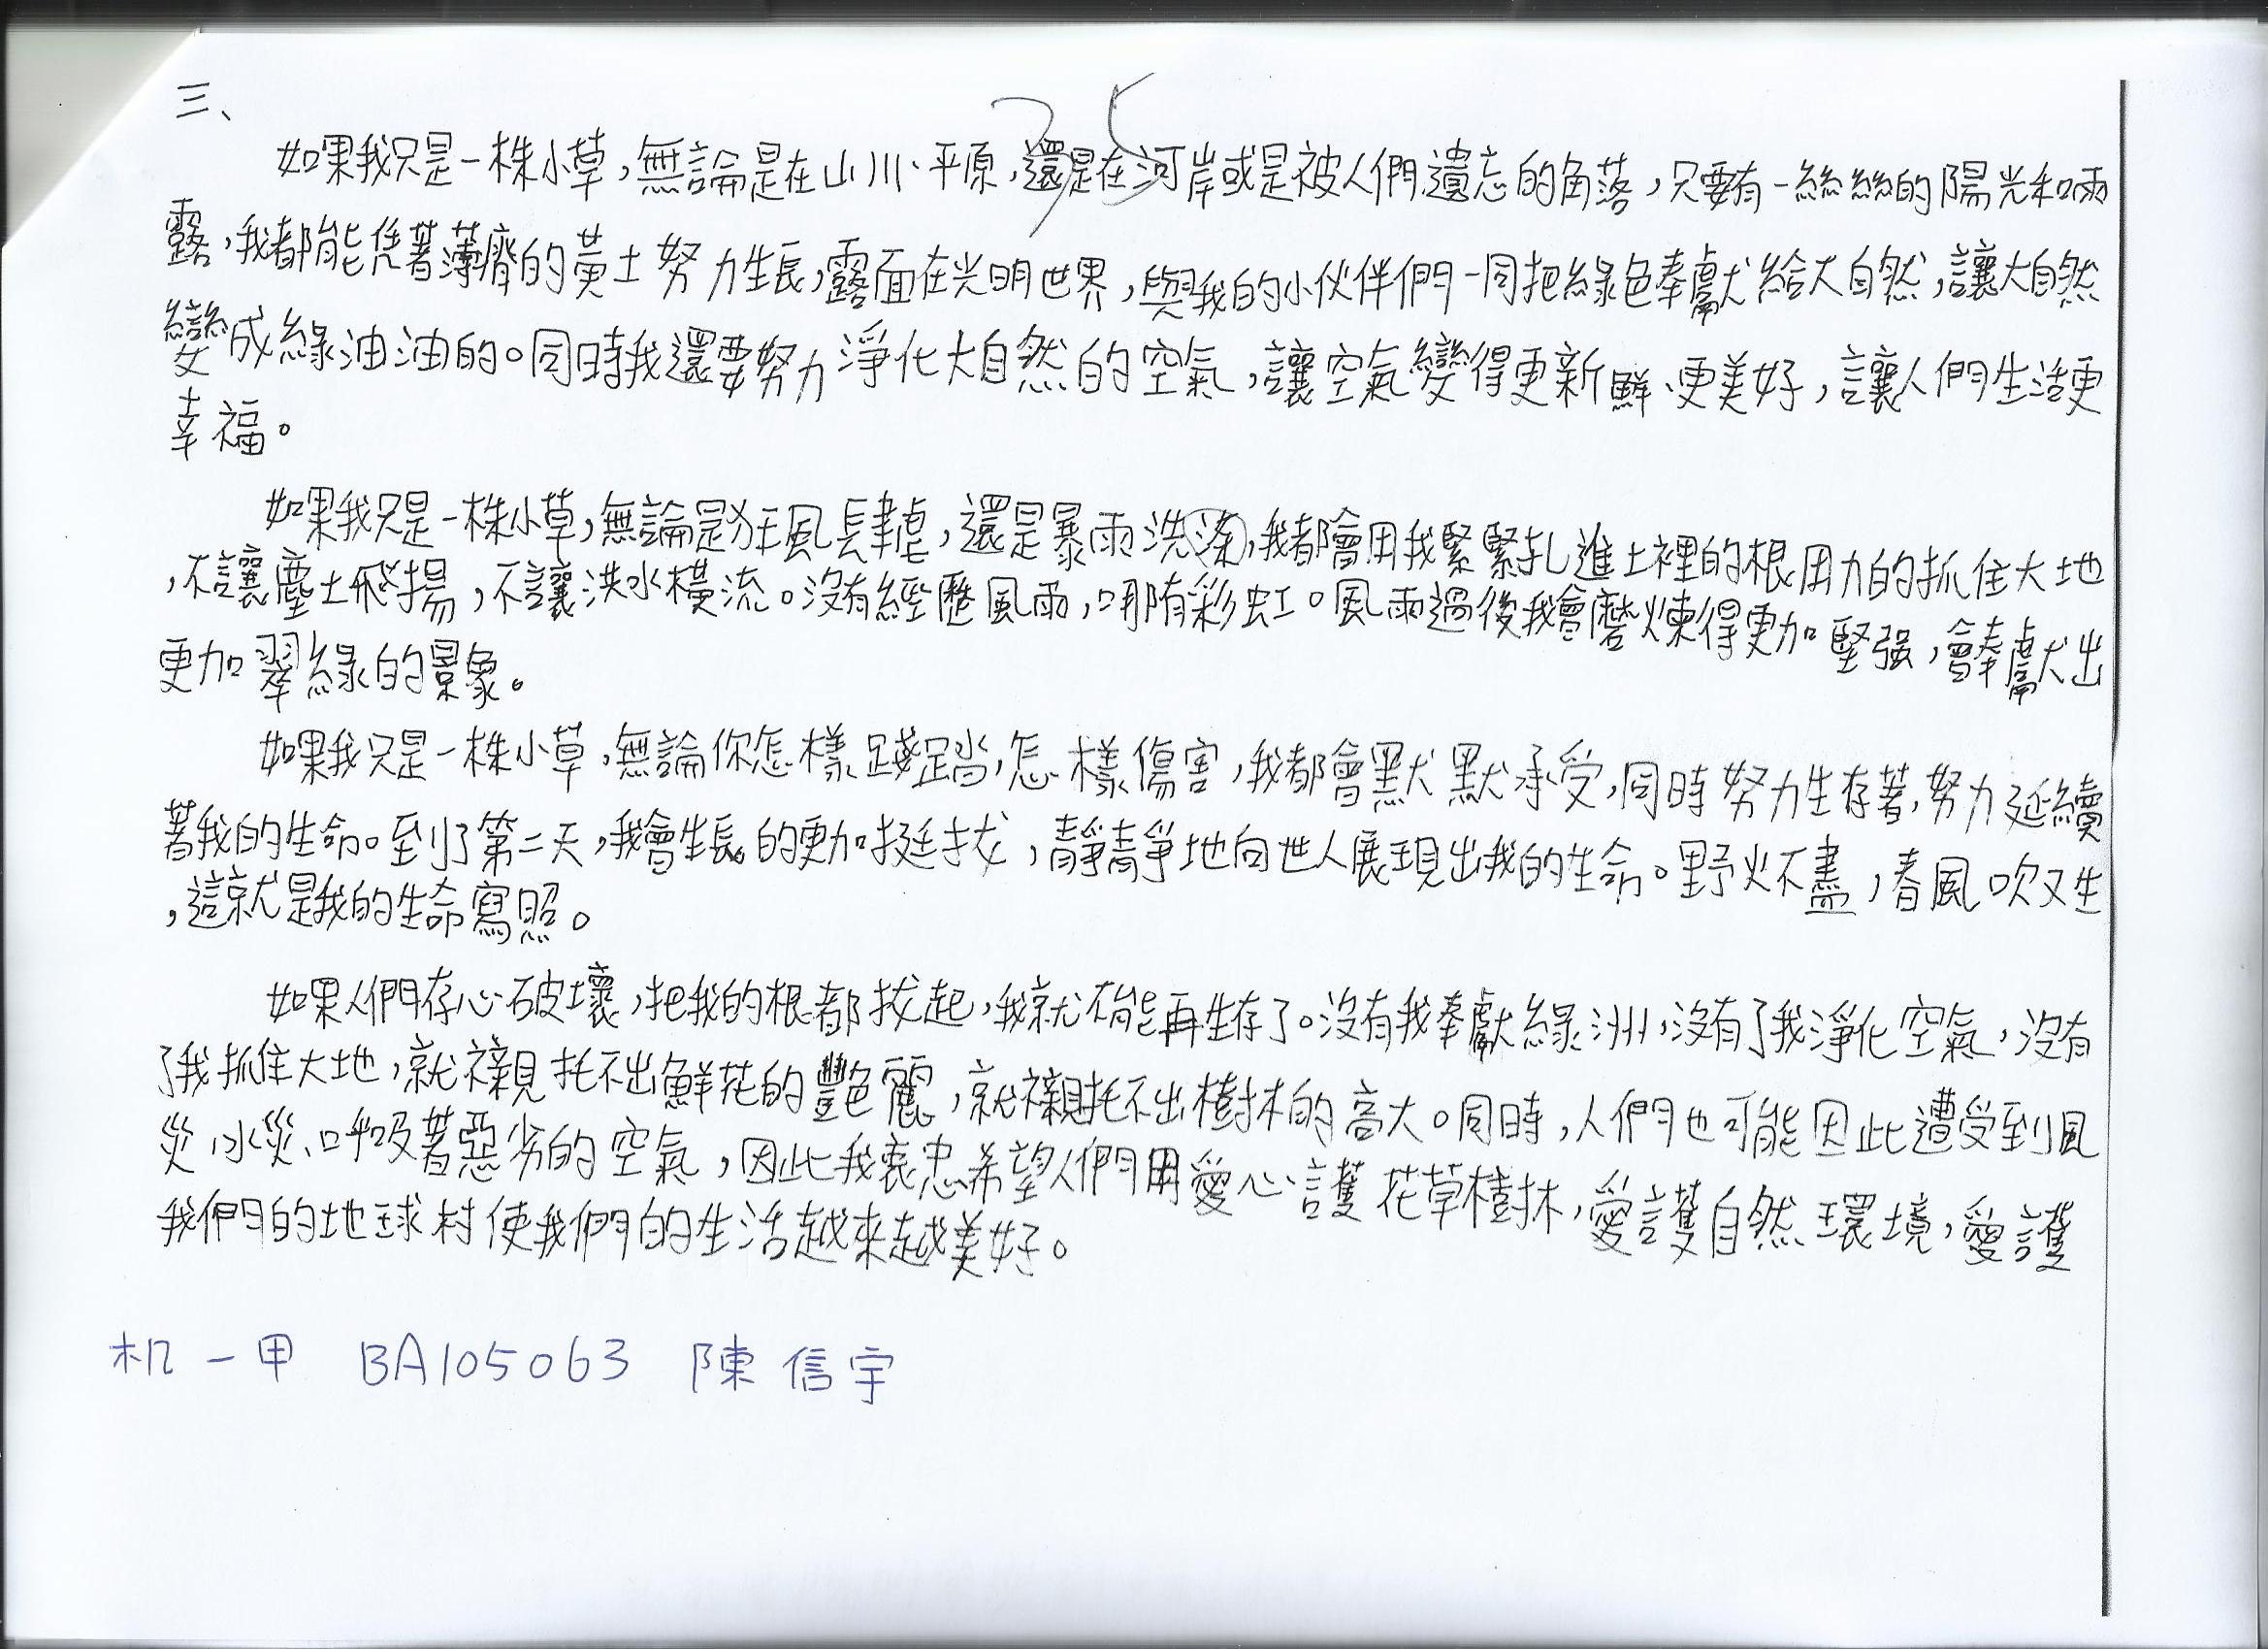 三、
35
如果我只是一株小草，無論是在山川、平原，還是在河岸或是被人們遺忘的角落，只要有一絲絲的陽光和雨
露，我都能凭著薄瘠的黃土努力生長，露面在光明世界，與我的小伙伴們一同把綠色奉獻給大自然，讓大自然
變成綠油油的。同時我還要努力淨化大自然的空氣，讓空氣變得更新鮮、更美好，讓人們生活更
幸福。
如果我只是一株小草，無論是狂風肆虐，還是暴雨洗滌，我都會用我緊緊扎進土裡的根用力的抓住大地
，不讓塵土飛揚，不讓洪水橫流。沒有經歷風雨，哪有彩虹。風雨過後我會磨煉得更加堅强，會奉獻出
更加翠綠的景象。
如果我只是一株小草，無論你怎樣踐踏，怎樣傷害，我都會默默承受，同時努力生存著，努力延續
著我的生命。到了第二天，我會生長的更加挺拔，靜靜地向世人展現出我的生命。野火不盡，春風吹又生
，這就是我的生命寫照。
如果人們存心破壞，把我的根都拔起，我就不能再生存了。沒有我奉獻綠洲，沒有了我淨化空氣，沒有
了我抓住大地，就襯托不出鮮花的艷麗，就襯托不出樹林的高大。同時，人們也可能因此遭受到風
災、水災、呼吸著惡劣的空氣，因此我衷忠希望人們用愛心護花草樹林，愛護自然環境，愛護
我們的地球村使我們的生活越來越美好。
机一甲 BA105063 陳信宇